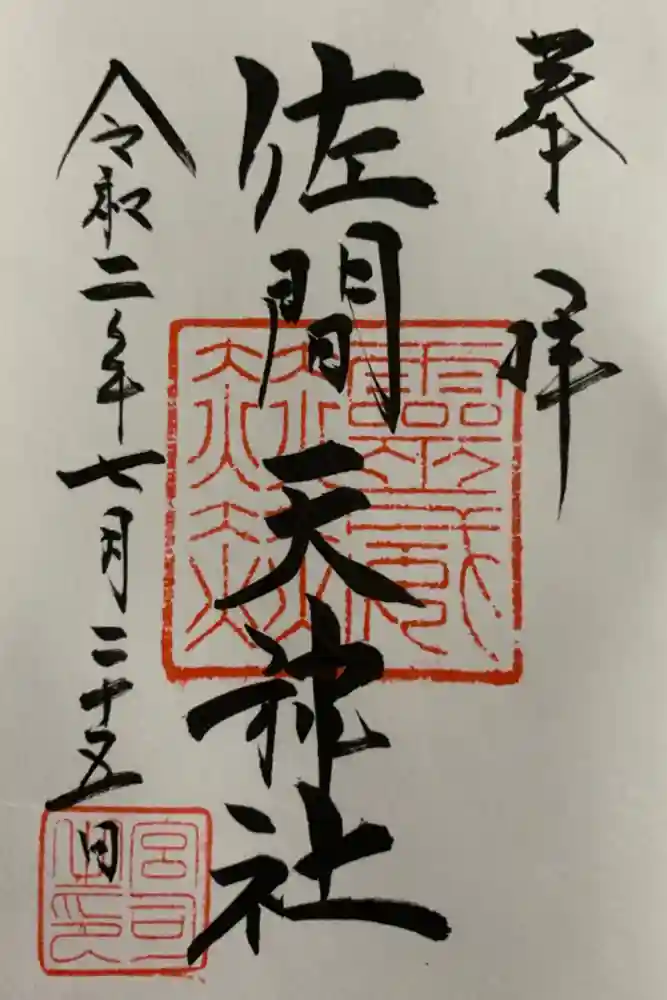 奉拝
佐間天神社
令和二年七月二十五日